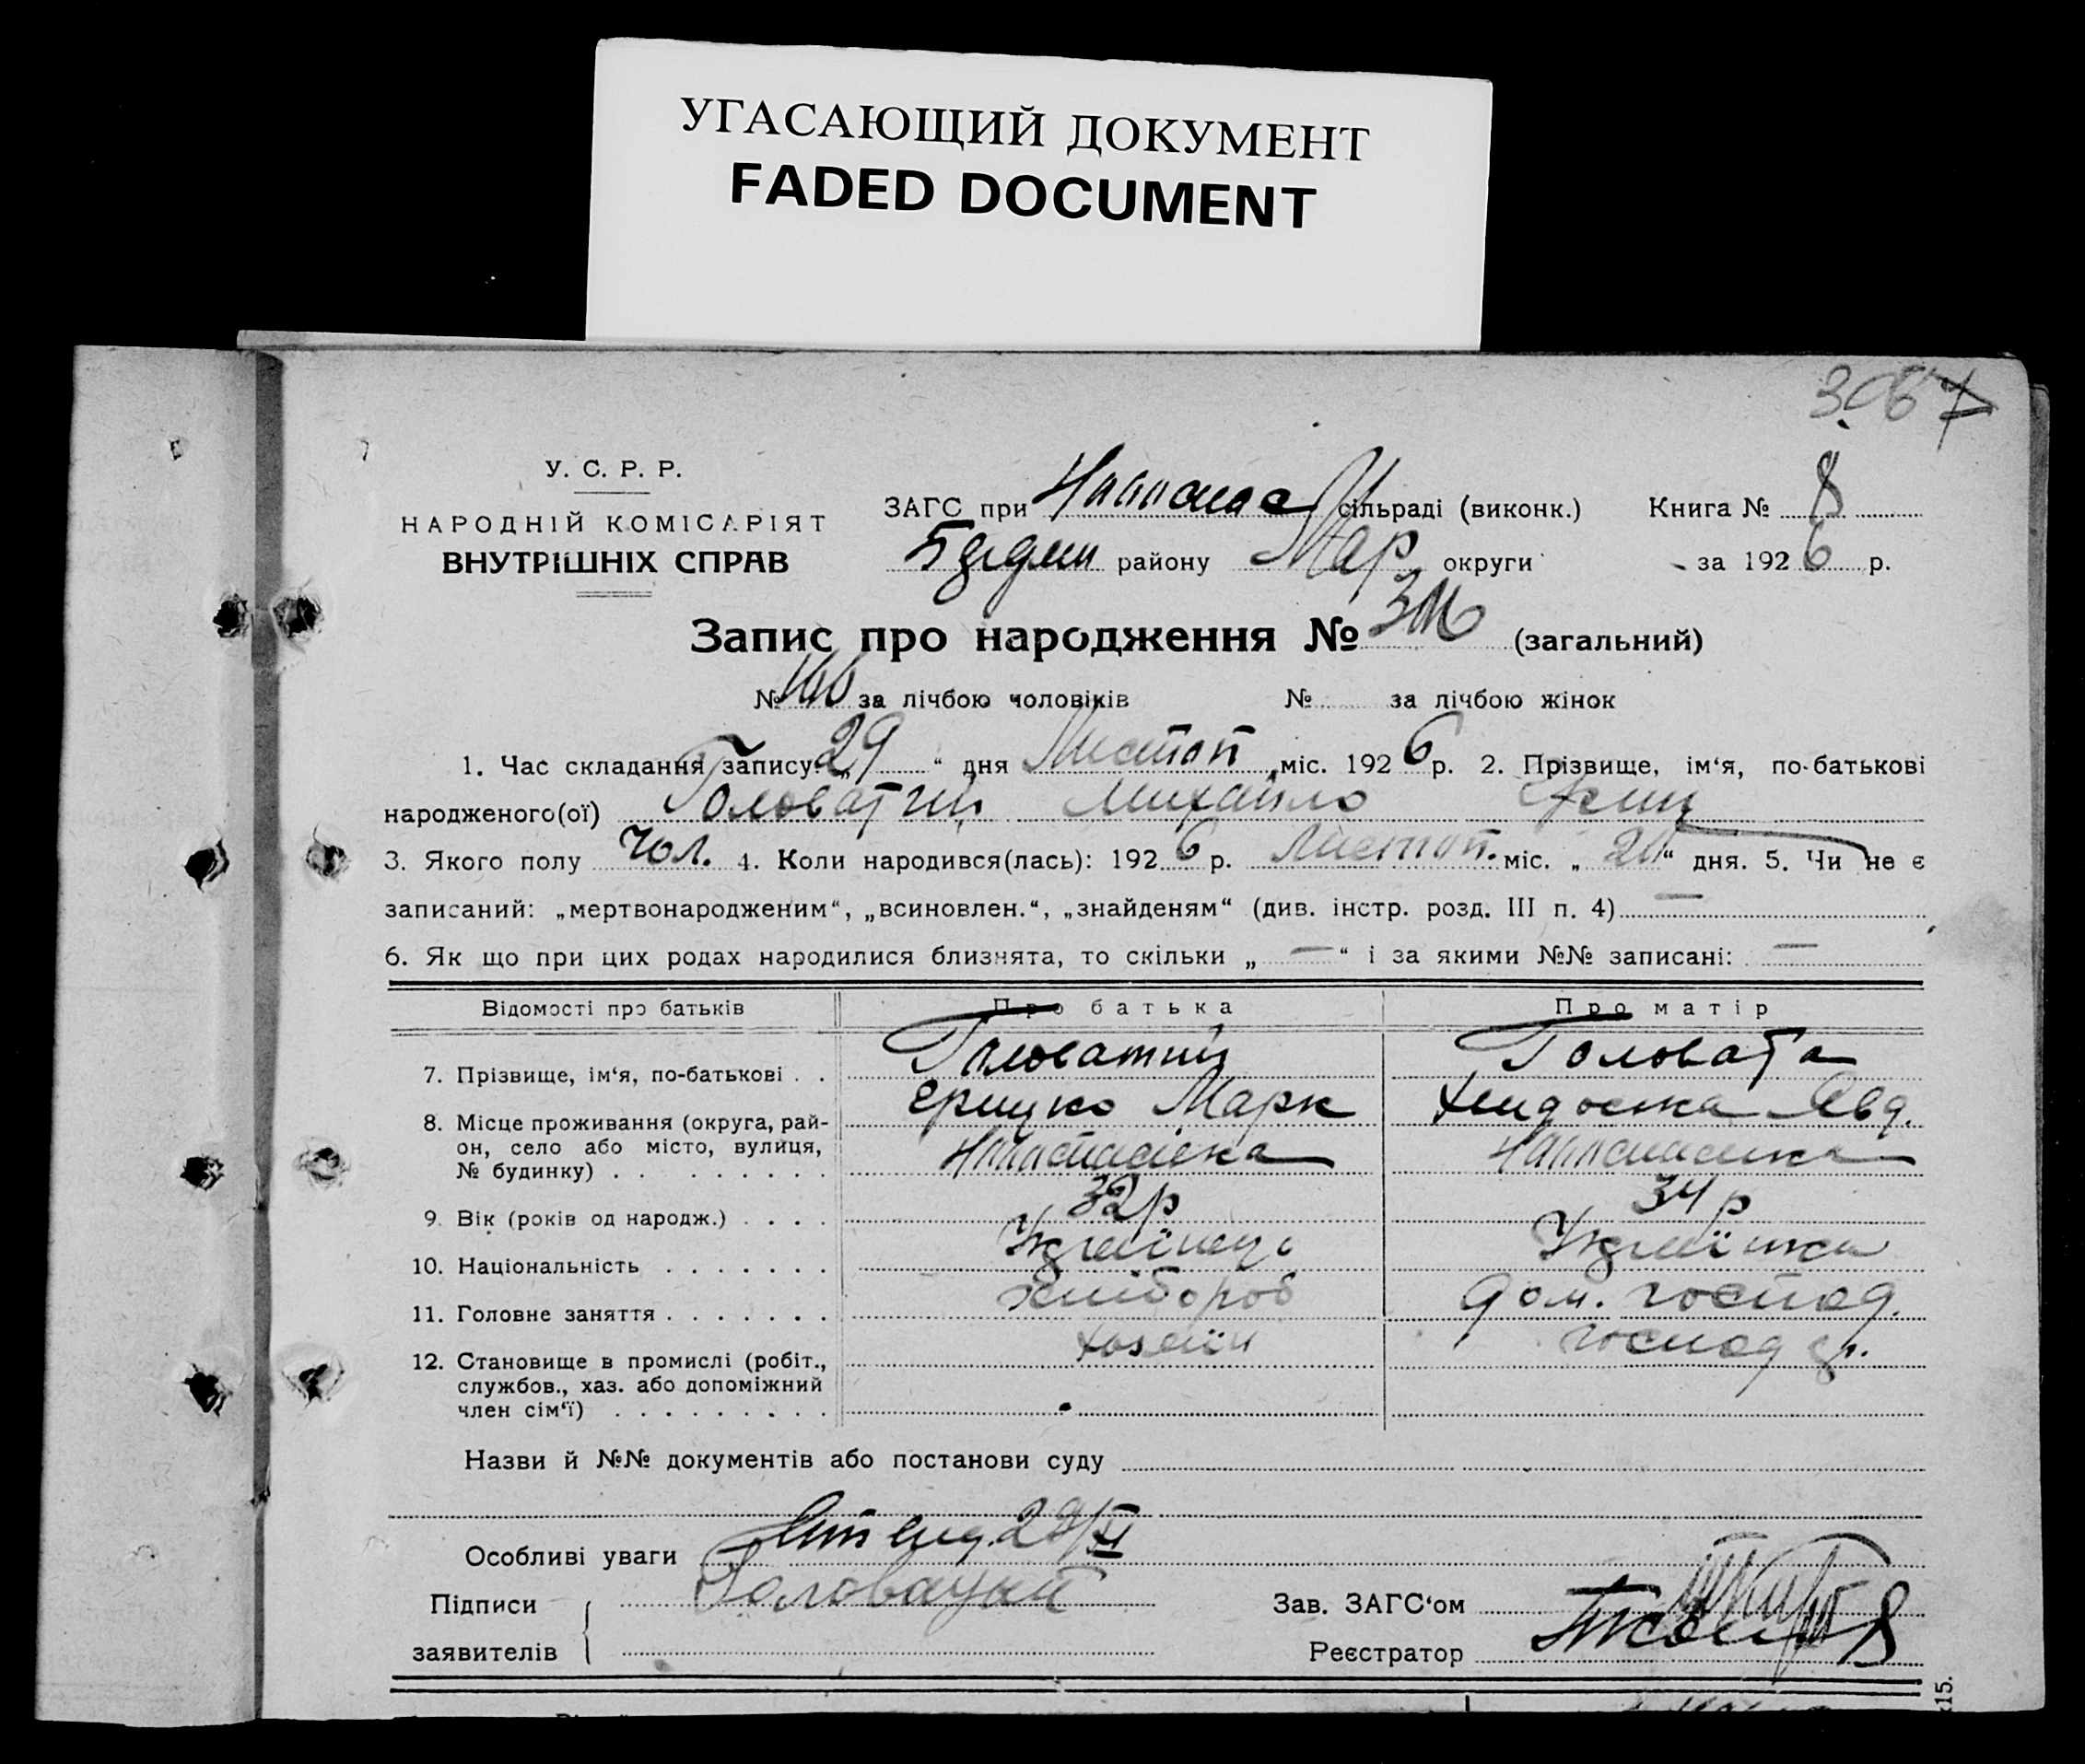 УГАСАЮЩИЙ ДОКУМЕНТ
FADED DOCUMENT
У. С. Р. Р.
НАРОДНІЙ КОМІСАРІЯТ
ВНУТРІШНІХ СПРАВ
ЗАГС при сільраді (виконк.) Книга № 8
району Мар округи за 1926 р.
Запис про народження № (загальний)
№ за лічбою чоловіків № за лічбою жінок
1. Час складання запису: „29“ дня Листоп міс. 1926 р. 2. Прізвище, ім‘я, по-батькові
народженого(ої) Головатий Михайло
3. Якого полу Чол. 4. Коли народився(лась): 1926 р. Листоп. міс. „ “ дня. 5. Чи не є
записаний: „мертвонародженим“, „всиновлен.“, „знайденям“ (див. інстр. розд. III п. 4) —
6. Як що при цих родах народилися близнята, то скільки „ — “ і за якими №№ записані: —
Відомості про батьків Про батька Про матір
7. Прізвище, ім‘я, по-батькові . . Головатий Головата
Марк Явд.
8. Місце проживання (округа, рай-
он, село або місто, вулиця,
№ будинку) . . . . . . . . .
9. Вік (років од народж.) . . . . 32р 34р
10. Національність . . . . . . . Українець Українка
11. Головне заняття . . . . . . . хлібороб дом. господ.
12. Становище в промислі (робіт., хазяїн
службов., хаз. або допоміжний
член сім‘ї) . . . . . . . . .
Назви й №№ документів або постанови суду
Особливі уваги 29/XI
Підписи
заявителів
Зав. ЗАГС‘ом
Реєстратор